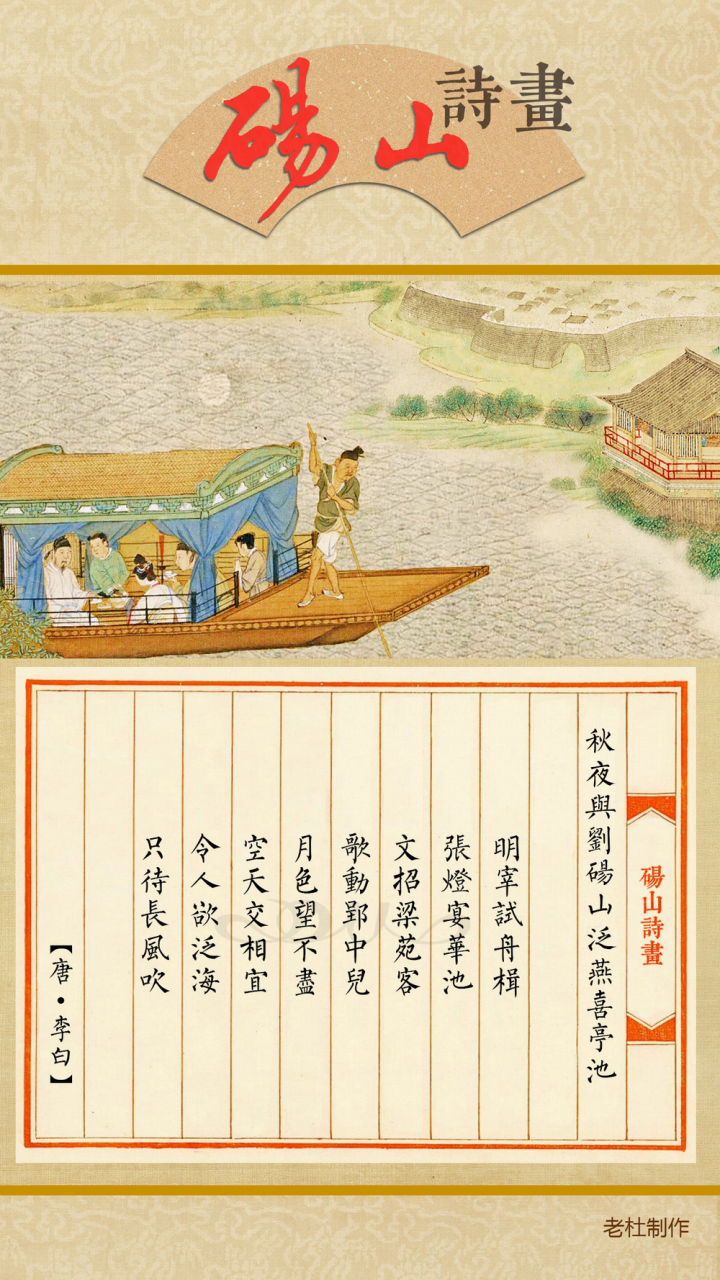 碭山詩畫
碭山詩畫
秋夜與劉碭山泛燕喜亭池
明宰試舟楫
張燈宴華池
文招梁苑客
歌動郢中兒
月色望不盡
空天交相宜
令人欲泛海
只待長風吹
【唐·李白】
老杜制作